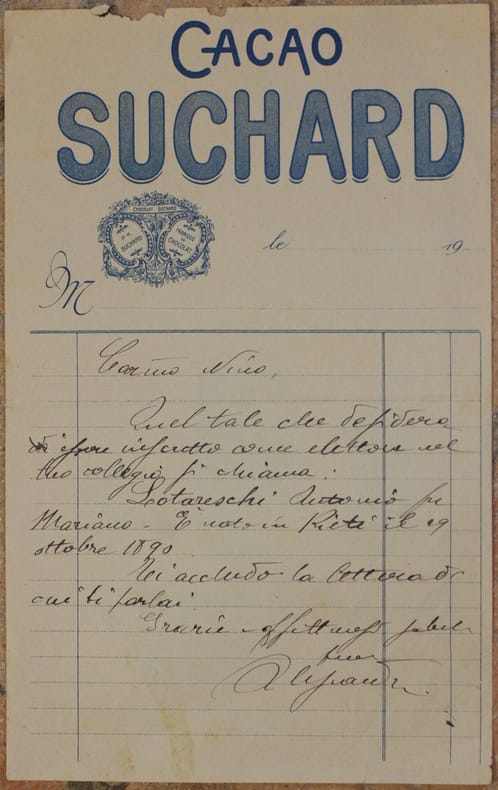 CACAO
SUCHARD
CHOCOLAT SUCHARD
PH. SUCHARD
FABRIQUE DE CHOCOLAT
le 19
M
Carmo Nino,
Quel tale che desidera
di essere inscritto come elettore nel
tuo collegio si chiama:
Lotareschi Antonio fu
Mariano - È nato in Rieti il 29
ottobre 1890
Vi accludo la lettera di
cui ti parlai.
Grazie